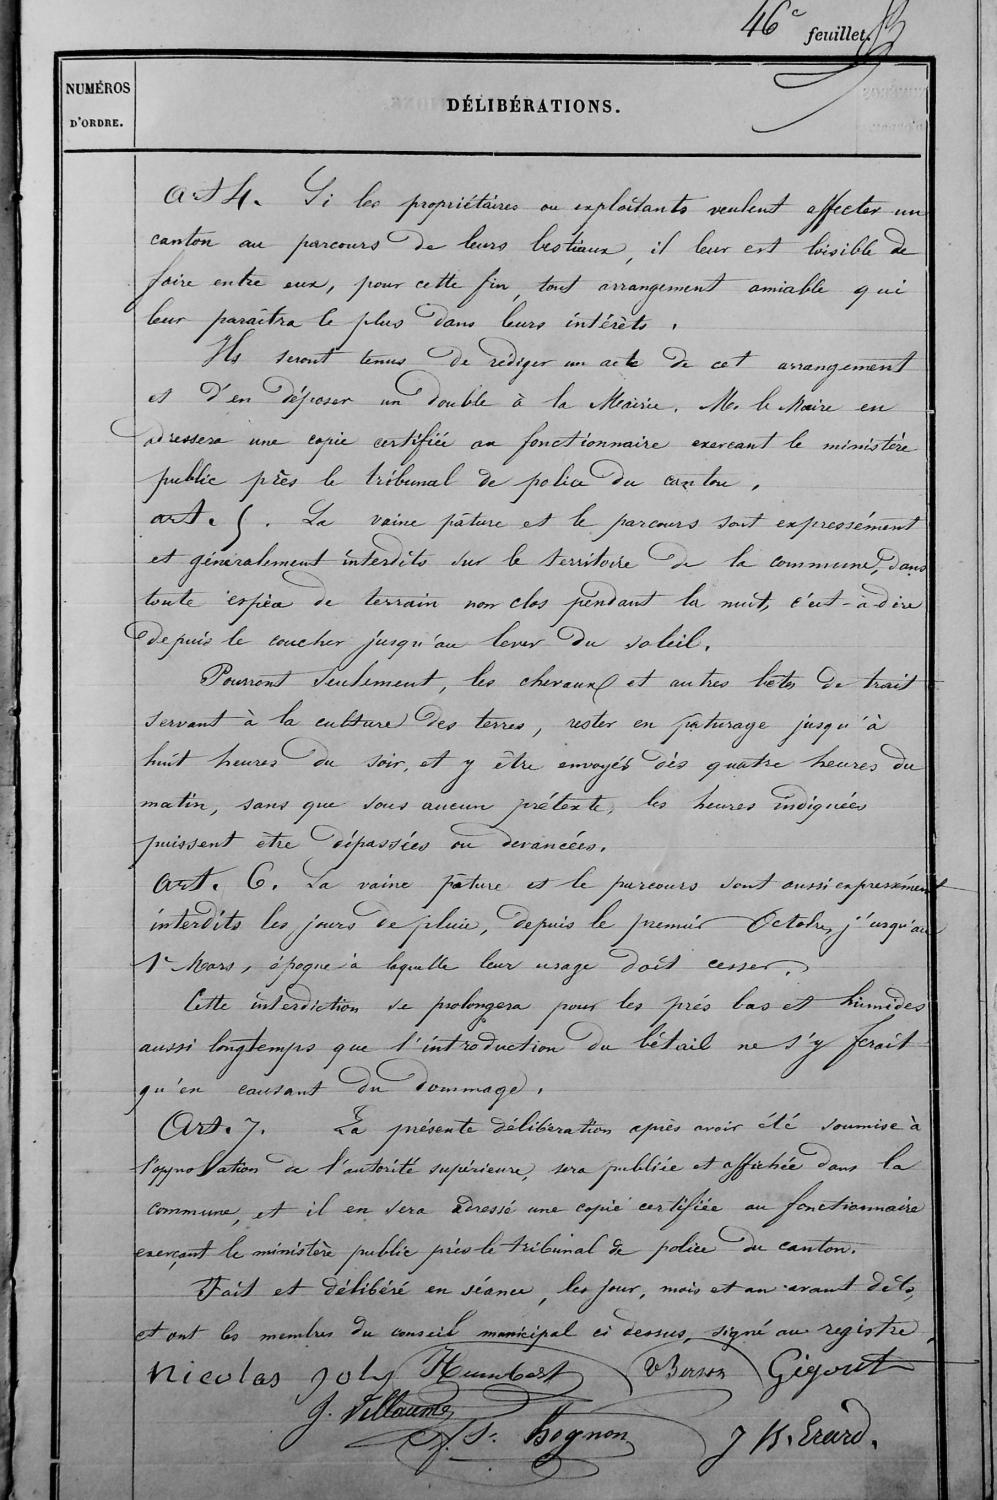 46e feuillet.
NUMÉROS
D'ORDRE.
DÉLIBÉRATIONS.
Art 4. Si les propriétaires ou exploitants veulent affecter un
canton au parcours de leurs bestiaux, il leur est loisible de
faire entre eux, pour cette fin, tout arrangement amiable qui
leur paraîtra le plus dans leurs intérêts.
Ils seront tenus de rédiger un acte de cet arrangement
et d'en déposer un double à la Mairie. M. le Maire en
adressera une copie certifiée au fonctionnaire exercant le ministère
public près le tribunal de police du canton.
art. 5. La vaine pâture et le parcours sont expressément
et généralement interdits sur le territoire de la commune, dans
toute espèce de terrain non clos pendant la nuit, c'est-à-dire
depuis le coucher jusqu'au lever du soleil.
Pourront seulement, les chevaux et autres bêtes de trait
servant à la culture des terres, rester en pâturage jusqu'à
huit heures du soir, et y être envoyés dès quatre heures du
matin, sans que sous aucun prétexte, les heures indiquées
puissent être dépassées ou devancées.
Art. 6. La vaine pâture et le parcours sont aussi expressément
interdits les jours de pluie, depuis le premier Octobre, jusqu'au
1er Mars, époque à laquelle leur usage doit cesser.
Cette interdiction se prolongera pour les prés bas et humides
aussi longtemps que l'introduction du bétail ne s'y ferait
qu'en causant du dommage.
Art. 7. La présente délibération après avoir été soumise à
l'approbation de l'autorité supérieure, sera publiée et affichée dans la
commune, et il en sera adressé une copie certifiée au fonctionnaire
exerçant le ministère public près le tribunal de police du canton.
Fait et délibéré en séance, les jour, mois et an avant dits,
et ont les membres du conseil municipal ci dessus, signé au registre.
Nicolas Joly Humbert Gigout
J. Villaume
Hognon J B. Erard.